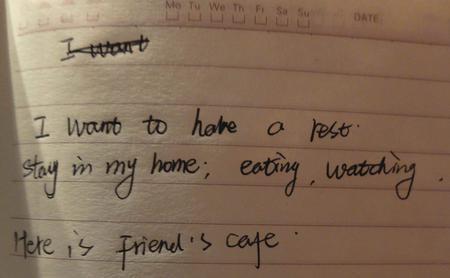 Mo Tu We Th Fr Sa Su DATE
I want
I want to have a rest.
stay in my home; eating, watching.
Here is Friend's cafe.